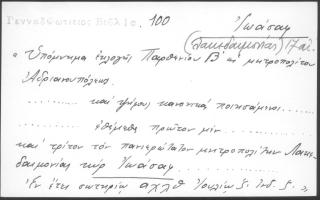 Γενναδ{ε}ιος Βιβλιο. 100 Ἰωάσαφ
(Λακεδαιμονίας) 17 αἰ.
« Ὑπόμνημα ἐκλογῆς Παρθενίου Β' ὡς μητροπολίτου
Ἀδριανουπόλεως.
........ καὶ ψήφους κανονικὰς ποιησάμενοι........
.......... ἐθέμεθα πρῶτον μὲν ..........
καὶ τρίτον τὸν πανιερώτατον μητροπολίτην Λακε-
δαιμονίας κὺρ Ἰωάσαφ ..........
« Ἐν ἔτει σωτηρίῳ αχλθ Ἰουλίῳ ζ. Ἰνδ. ζ. »,